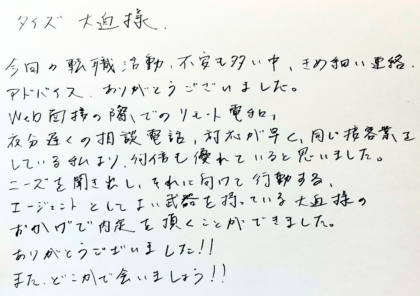 タイズ 大迫様.
今回の転職活動、不安も多い中、きめ細い連絡.
アドバイス、ありがとうございました。
Web面接の際でのリモート電話,
夜分遅くの相談電話, 対応が早く, 同じ接客業を
している私より、何倍も優れていると思いました。
ニーズを聞き出し、それに向けて行動する,
エージェントとしてよい武器を持っている大迫様の
おかげで内定を頂くことができました。
ありがとうございました!!
また、どこかで会いましょう!!